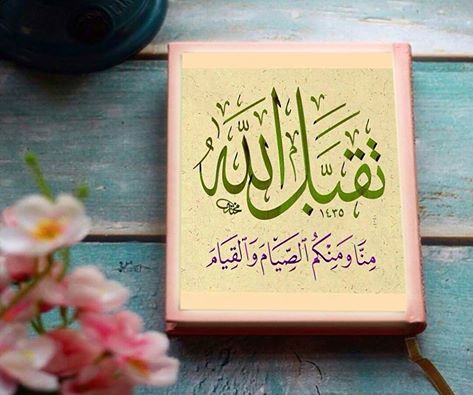 تَقَبَّلَ اللّٰه
١٤٣٥
مِنَّا وَمِنْكُم الصِّيَامَ وَالْقِيَامَ